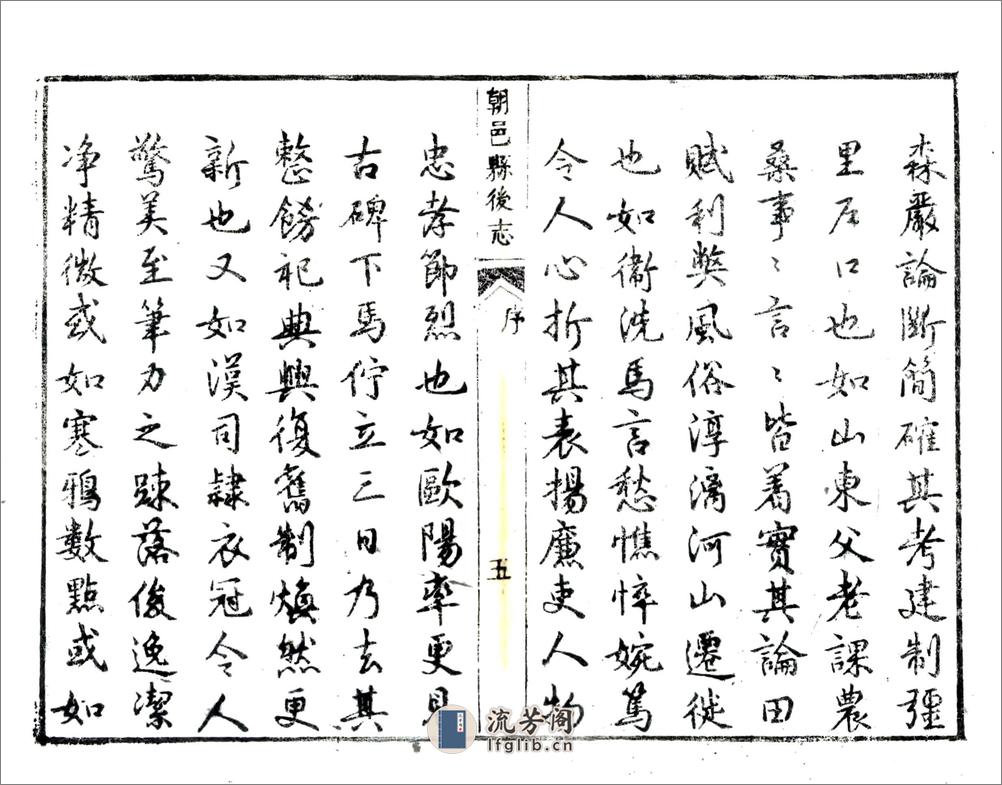 森嚴論斷簡確其考建制疆
里戶口也如山東父老課農
桑事〻言〻皆着實其論田
賦利弊風俗淳漓河山遷徙
也如衞洗馬言愁憔悴婉篤
令人心折其表揚廉吏人物
朝邑縣後志
序
五
忠孝節烈也如歐陽率更見
古碑下馬佇立三日乃去其
整飭祀典興復舊制煥然更
新也又如漢司隸衣冠令人
驚美至筆力之踈落俊逸潔
净精微或如寒鴉數點或如
流芳阁
lfglib.cn